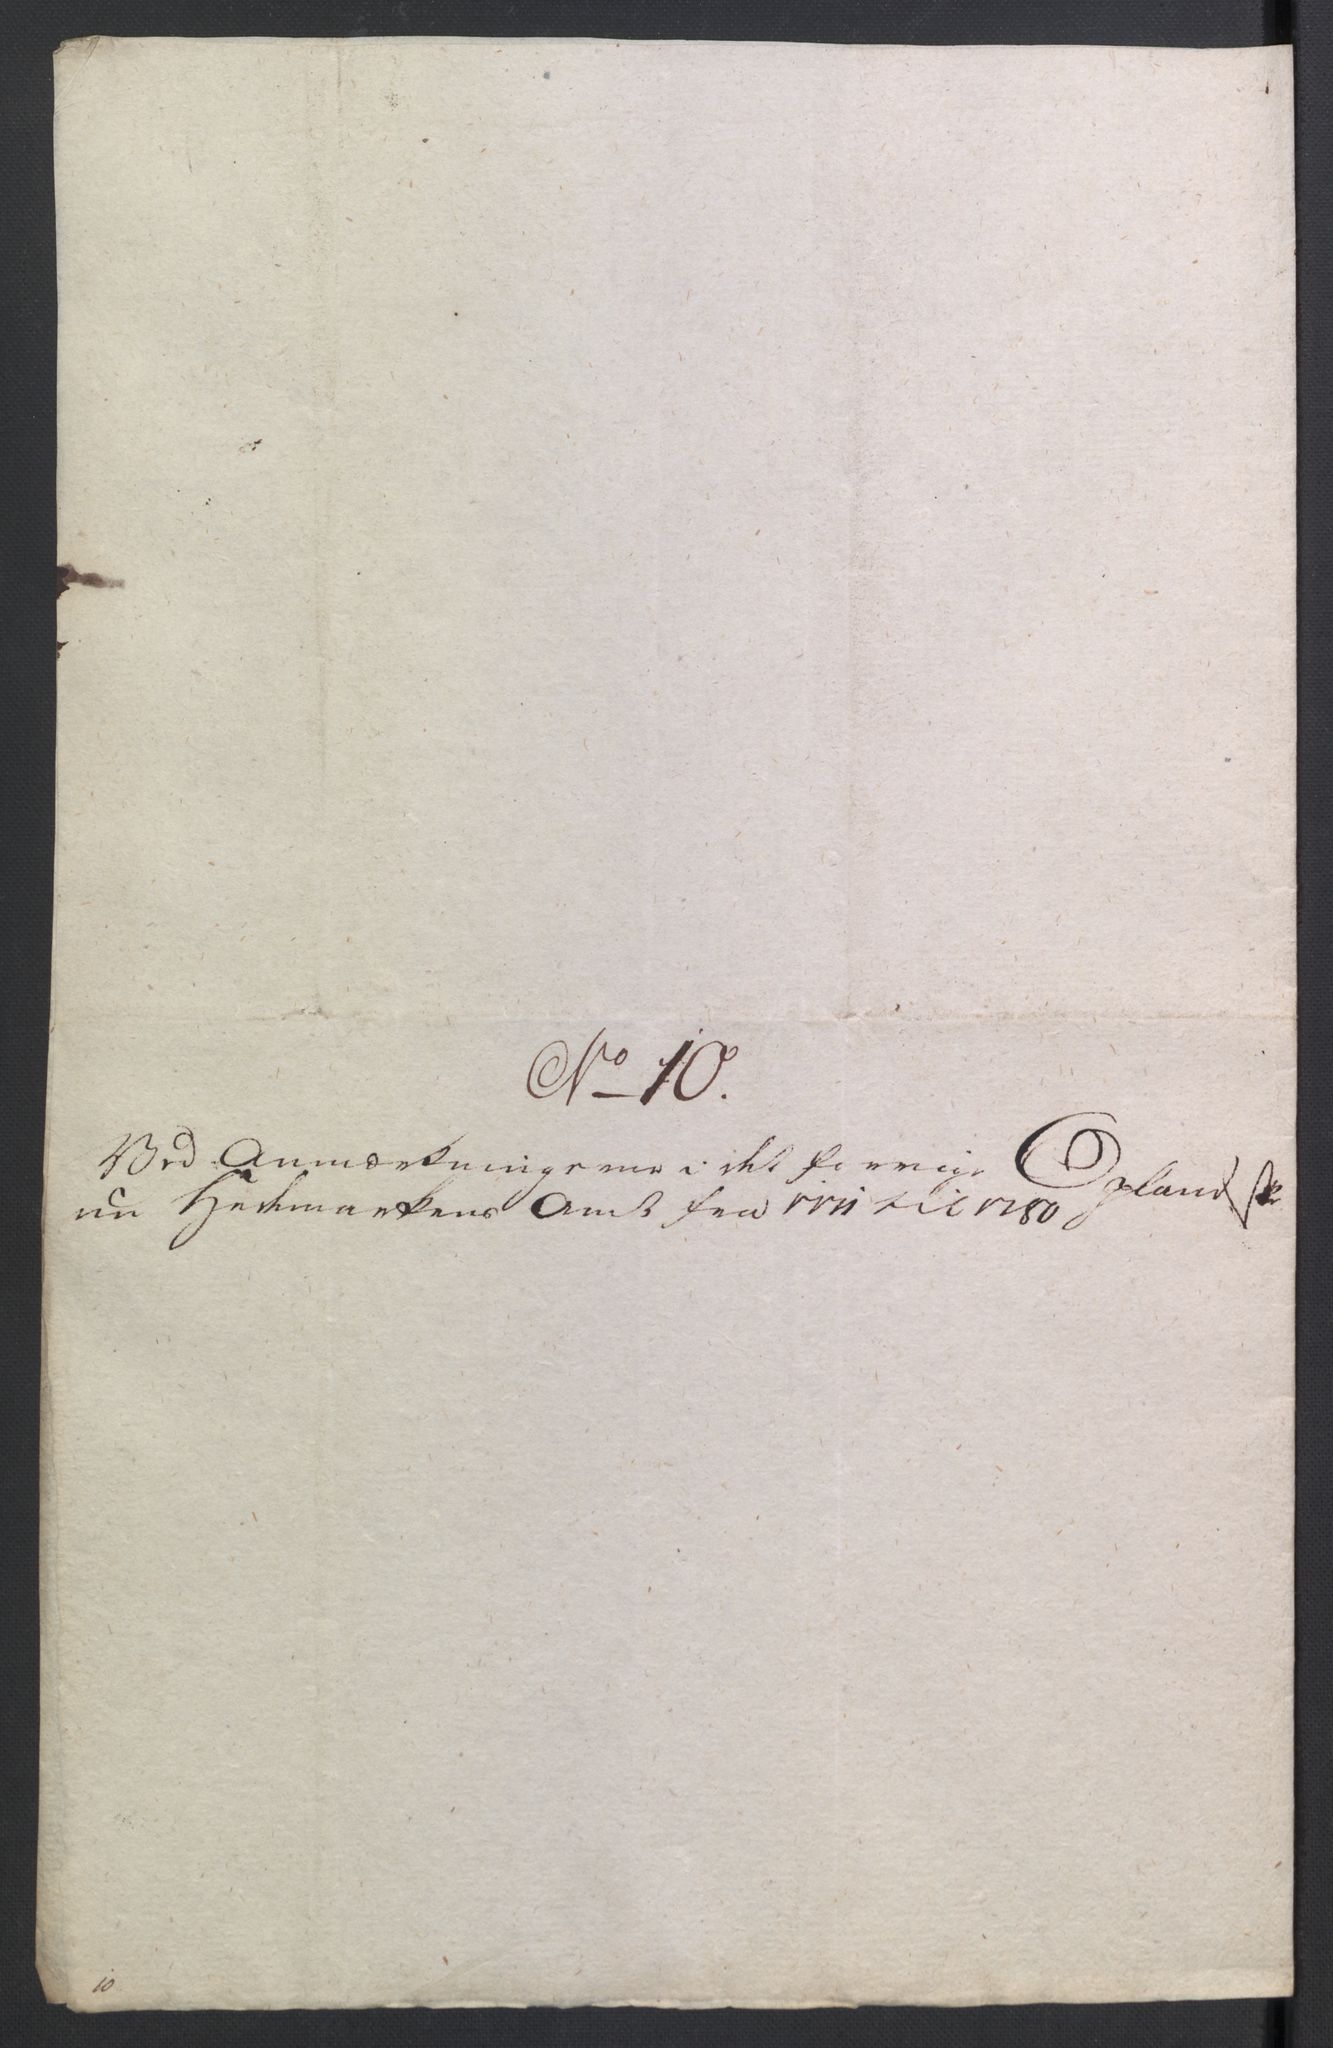 No 10.
Ved Anmærkningerne i det forrige Oplandske
nu Hedemarkens Amt fra 1771 til 1780
10